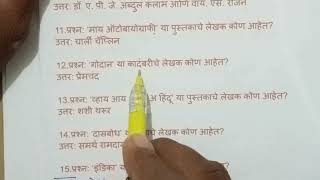 उत्तर: डॉ. ए. पी. जे. अब्दुल कलाम आणि वाय. एस. राजन
11.प्रश्न: 'माय ऑटोबायोग्राफी' या पुस्तकाचे लेखक कोण आहेत?
उत्तर: चार्ली चॅप्लिन
12.प्रश्न: 'गोदान' या कादंबरीचे लेखक कोण आहेत?
उत्तर: प्रेमचंद
13.प्रश्न: 'व्हाय आय अ हिंदू' या पुस्तकाचे लेखक कोण आहेत?
उत्तर: शशी थरूर
14.प्रश्न: 'दासबोध' चे लेखक कोण आहेत?
उत्तर: समर्थ रामदास
15.प्रश्न: 'इंडिका' लेखक कोण आहेत?